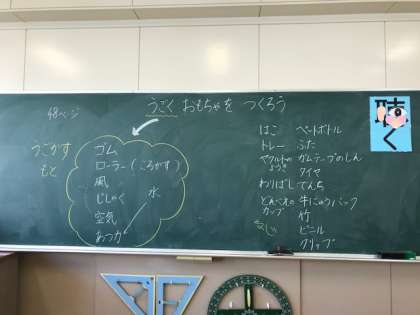 うごく おもちゃを つくろう
48ページ
うごかす
もと
ゴム
ローラー(ころがす)
風
じしゃく
水
空気
あつか
はこ
トレー
ヤクルトの
ようき
わりばし
カップ
ペットボトル
ふた
ガムテープのしん
タイヤ
でんち
牛にゅうパック
竹
ビニール
クリップ
聴く